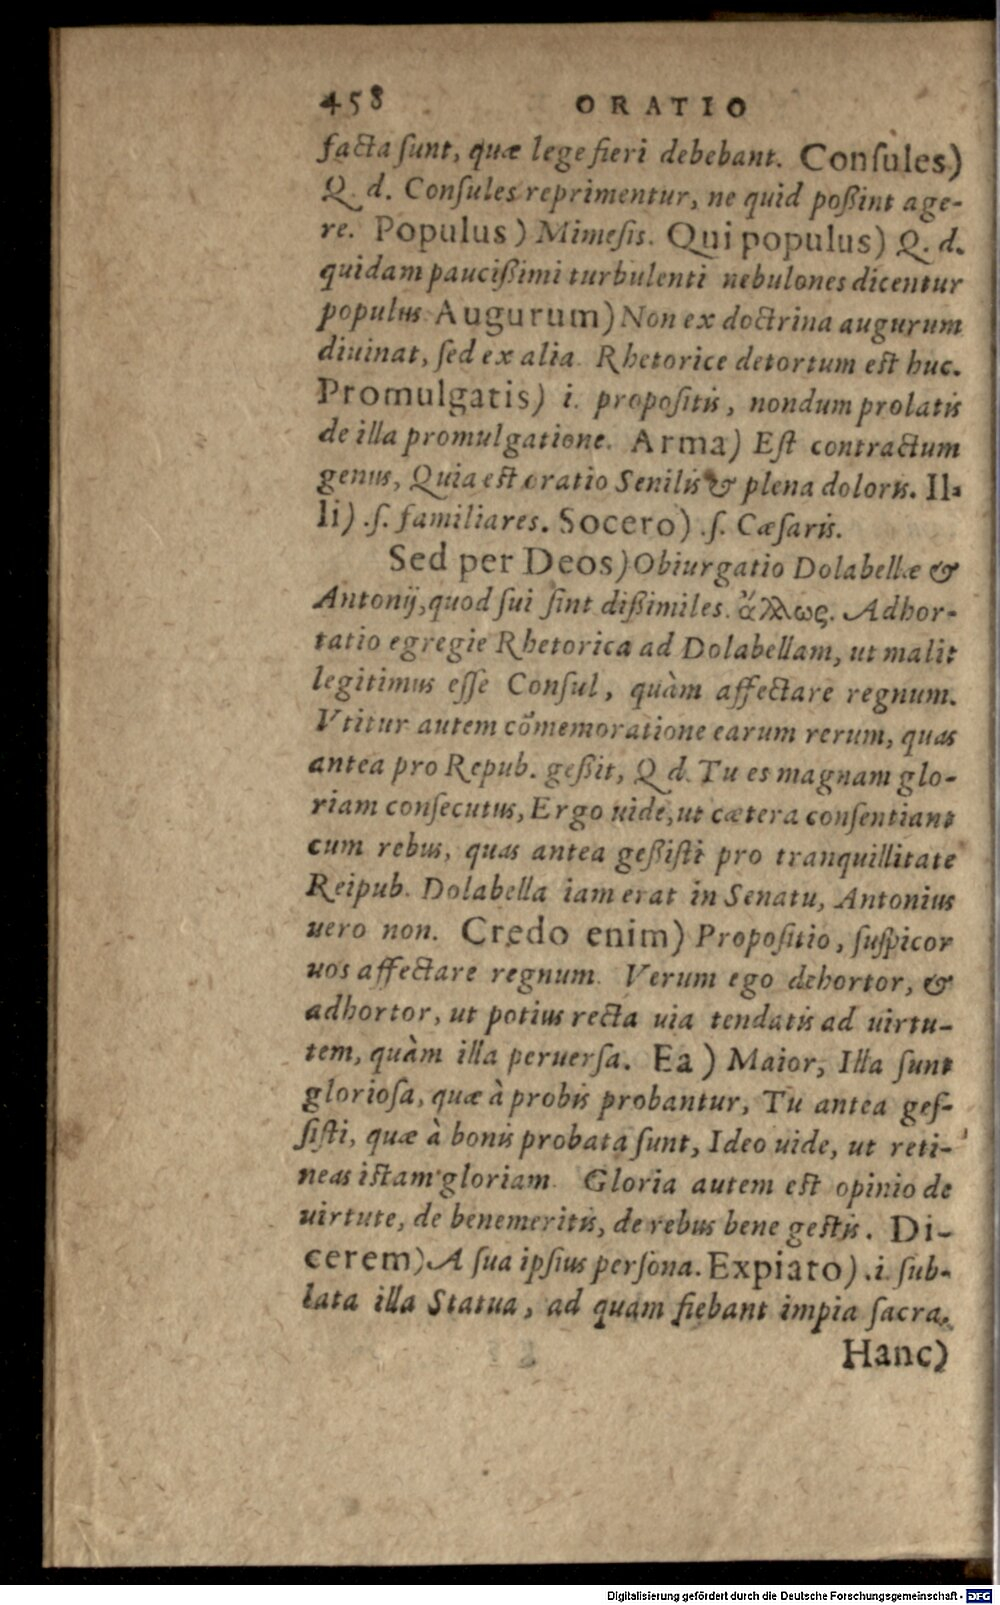 458 ORATIO
facta ſunt, quæ lege fieri debebant. Conſules)
Q. d. Conſules reprimentur, ne quid poßint age-
re. Populus) Mimeſis. Qui populus) Q. d.
quidam paucißimi turbulenti nebulones dicentur
populus. Augurum) Non ex doctrina augurum
diuinat, ſed ex alia. Rhetorice detortum eſt huc.
Promulgatis) i. propoſitis, nondum prolatis
de illa promulgatione. Arma) Eſt contractum
genus, Quia eſt oratio Senilis & plena doloris. Il-
li) .ſ. familiares. Socero) .ſ. Cæſaris.
Sed per Deos) Obiurgatio Dolabellæ &
Antonij, quod ſui ſint dißimiles. ἄλλως. Adhor-
tatio egregie Rhetorica ad Dolabellam, ut malit
legitimus eſſe Conſul, quàm affectare regnum.
Vtitur autem cõmemoratione earum rerum, quas
antea pro Repub. geßit, Q d. Tu es magnam glo-
riam conſecutus, Ergo uide, ut cætera conſentiant
cum rebus, quas antea geßiſti pro tranquillitate
Reipub. Dolabella iam erat in Senatu, Antonius
uero non. Credo enim) Propoſitio, ſuſpicor
uos affectare regnum. Verum ego dehortor, &
adhortor, ut potius recta uia tendatis ad uirtu-
tem, quàm illa peruerſa. Ea) Maior, Illa ſunt
glorioſa, quæ à probis probantur, Tu antea geſ-
ſiſti, quæ à bonis probata ſunt, Ideo uide, ut reti-
neas iſtam gloriam. Gloria autem eſt opinio de
uirtute, de benemeritis, de rebus bene geſtis. Di-
cerem) A ſua ipſius perſona. Expiato) .i. ſub-
lata illa Statua, ad quam fiebant impia ſacra.
Hanc)
Digitalisierung gefördert durch die Deutsche Forschungsgemeinschaft - DFG